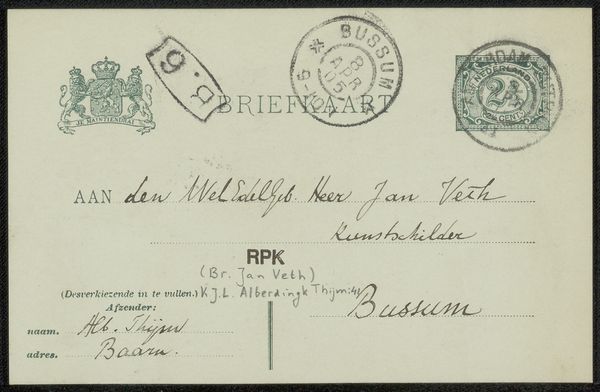 B. 6
BUSSUM
8
APR
05
6-10V
BRIEFKAART
NEDERLAND
2½
CENT
JE MAINTIENDRAI
AAN den WelEdelGeb. Heer Jan Veth
Kunstschilder
RPK
(Br. Jan Veth)
K.J.L. Alberdingk Thijm:41
Bussum
(Desverkiezende in te vullen.)
Afzender:
naam. Alb. Thijm
adres. Baarn.